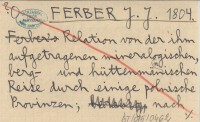 FERBER J. J. 1804.
Ferbers Relation von der ihm
aufgetragenen mineralogischen,
berg- und hüttenmännischen
Reise durch einige polnische
Provinzen; nach